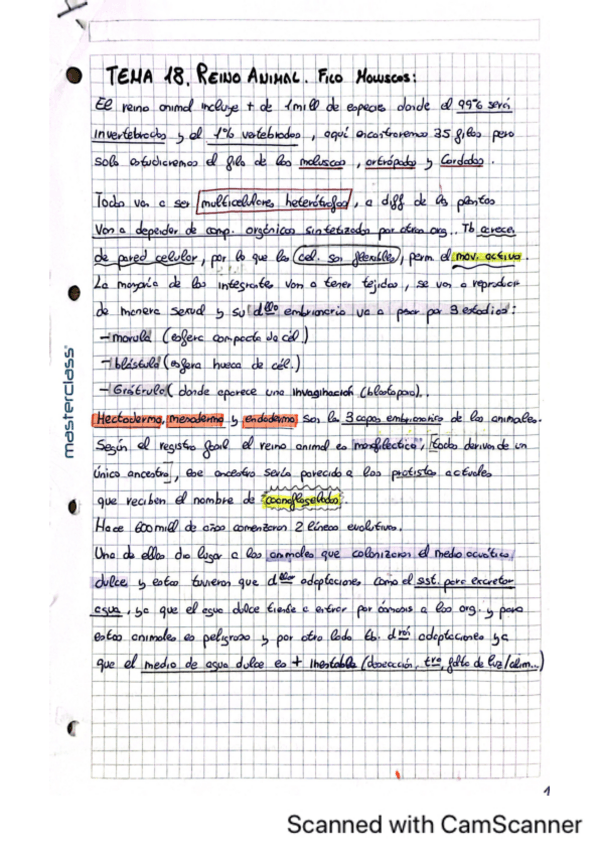 TEMA 18. REINO ANIMAL. FILO MOLUSCOS:
El reino animal incluye + de 1 mill de especies donde el 99% será
invertebrados y el 1% vertebrados, aquí encontraremos 35 filos pero
solo estudiaremos el filo de los moluscos, artrópodos y Cordados.
Todos van a ser multicelulares heterótrofos, a diff de las plantas
Van a depender de comp. orgánicos sintetizados por otros org.. Tb carecen
de pared celular, por lo que las cél. son flexibles, perm el mov. activo.
La mayoría de los integrantes van a tener tejidos, se van a reproducir
de manera sexual y su dllo embrionario va a pasar por 3 estadios:
- morula (esfera compacta de cél.)
- blástula (esfera hueca de cél.)
- Gástrula (donde aparece una invaginación (blastoporo)).
Hectodermo, mesodermo y endodermo son las 3 capas embrionarias de los animales.
Según el registro fósil el reino animal es monofilético, [todos derivan de un
único ancestro], ese ancestro sería parecido a los protistas actuales
que reciben el nombre de coanoflagelados.
Hace 600 mill de años comenzaron 2 líneas evolutivas.
Una de ellas dio lugar a los animales que colonizaron el medio acuático
dulce y estos tuvieron que dllar adaptaciones como el sist. para excretar
agua, ya que el agua dulce tiende a entrar por ósmosis a los org. y para
estos animales es peligroso y por otro lado tb. adaptaciones ya
que el medio de agua dulce es + inestable (desecación, tra, falta de luz/alim...)
masterclass
1
Scanned with CamScanner